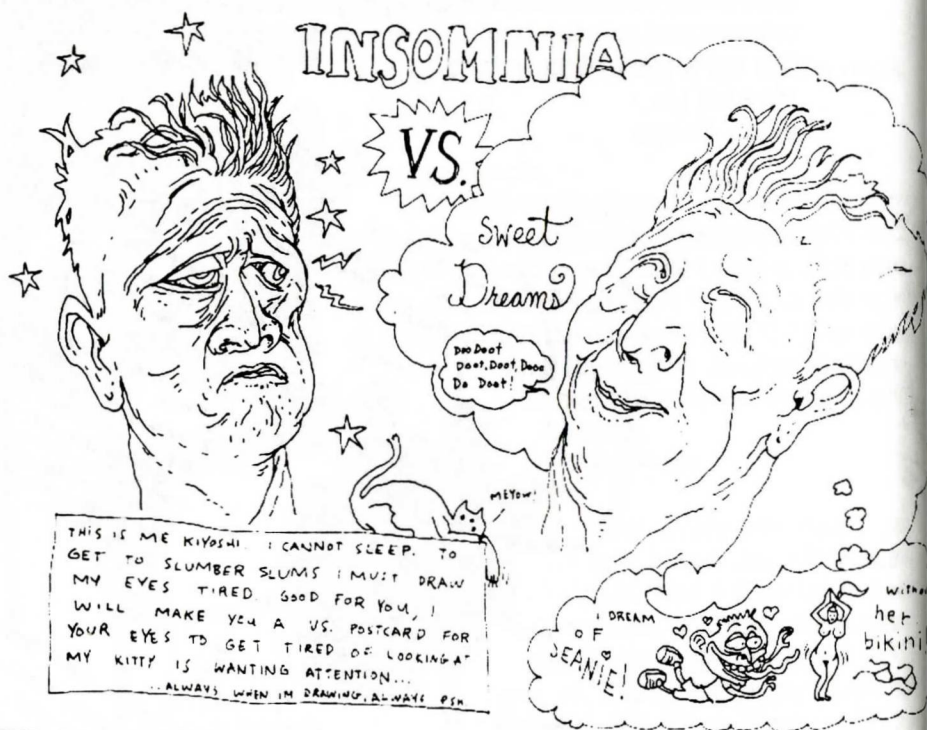 INSOMNIA
VS.
Sweet
Dreams
Doo Doot
Doot, Doot, Dooo
Do Doot!
MEYOW!
THIS IS ME KIYOSHI. I CANNOT SLEEP. TO
GET TO SLUMBER SLUMS I MUST DRAW
MY EYES TIRED. GOOD FOR YOU, I
WILL MAKE YOU A VS. POSTCARD FOR
YOUR EYES TO GET TIRED OF LOOKING AT
MY KITTY IS WANTING ATTENTION...
..ALWAYS WHEN IM DRAWING, ALWAYS PSH
I DREAM
OF
JEANIE!
her
bikini!